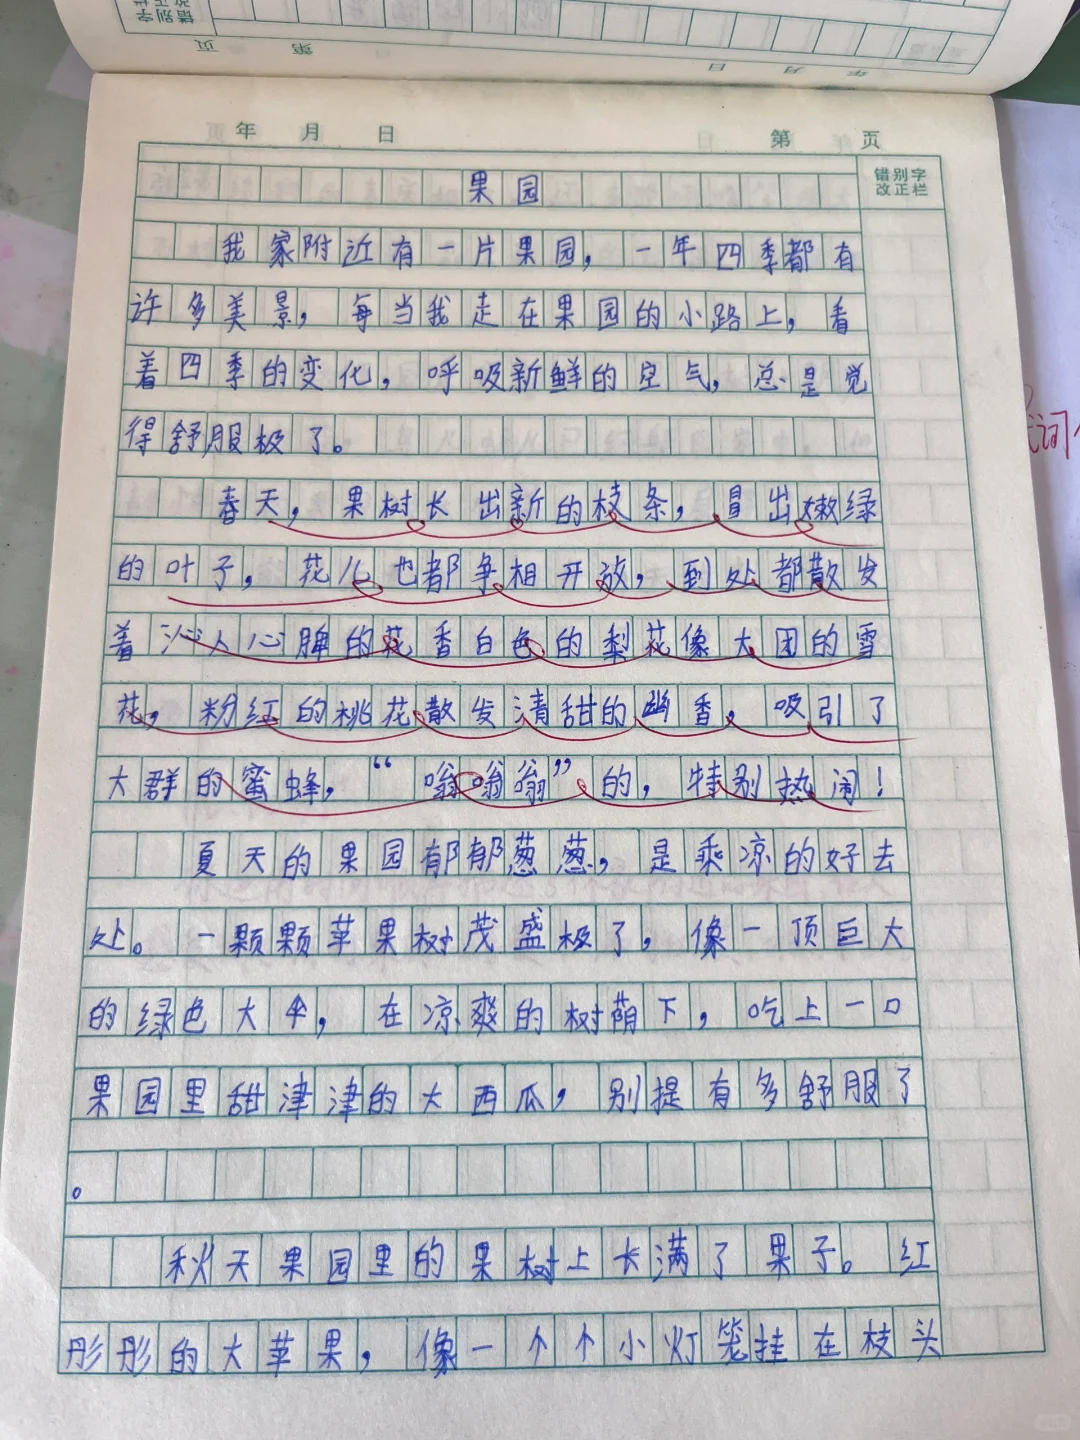 年 月 日 第 页
错别字
改正栏
果园
我家附近有一片果园，一年四季都有
许多美景，每当我走在果园的小路上，看
着四季的变化，呼吸新鲜的空气，总是觉
得舒服极了。
春天，果树长出新的枝条，冒出嫩绿
的叶子，花儿也都争相开放，到处都散发
着沁人心脾的花香白色的梨花像大团的雪
花，粉红的桃花散发清甜的幽香，吸引了
大群的蜜蜂，“嗡嗡嗡”的，特别热闹！
夏天的果园郁郁葱葱，是乘凉的好去
处。一颗颗苹果树茂盛极了，像一顶巨大
的绿色大伞，在凉爽的树荫下，吃上一口
果园里甜津津的大西瓜，别提有多舒服了
。
秋天果园里的果树上长满了果子。红
彤彤的大苹果，像一个个小灯笼挂在枝头